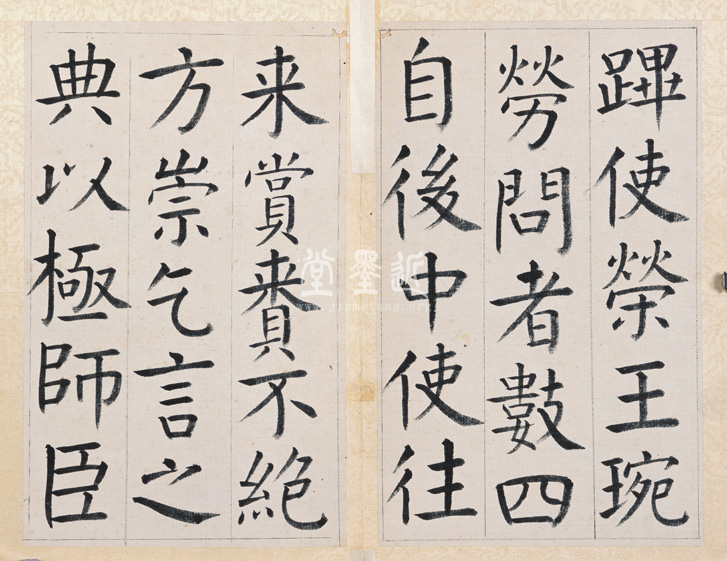 蹕使榮王琬
勞問者數四
自後中使往
来賞賚不絶
方崇乞言之
典以極師臣
近墨堂